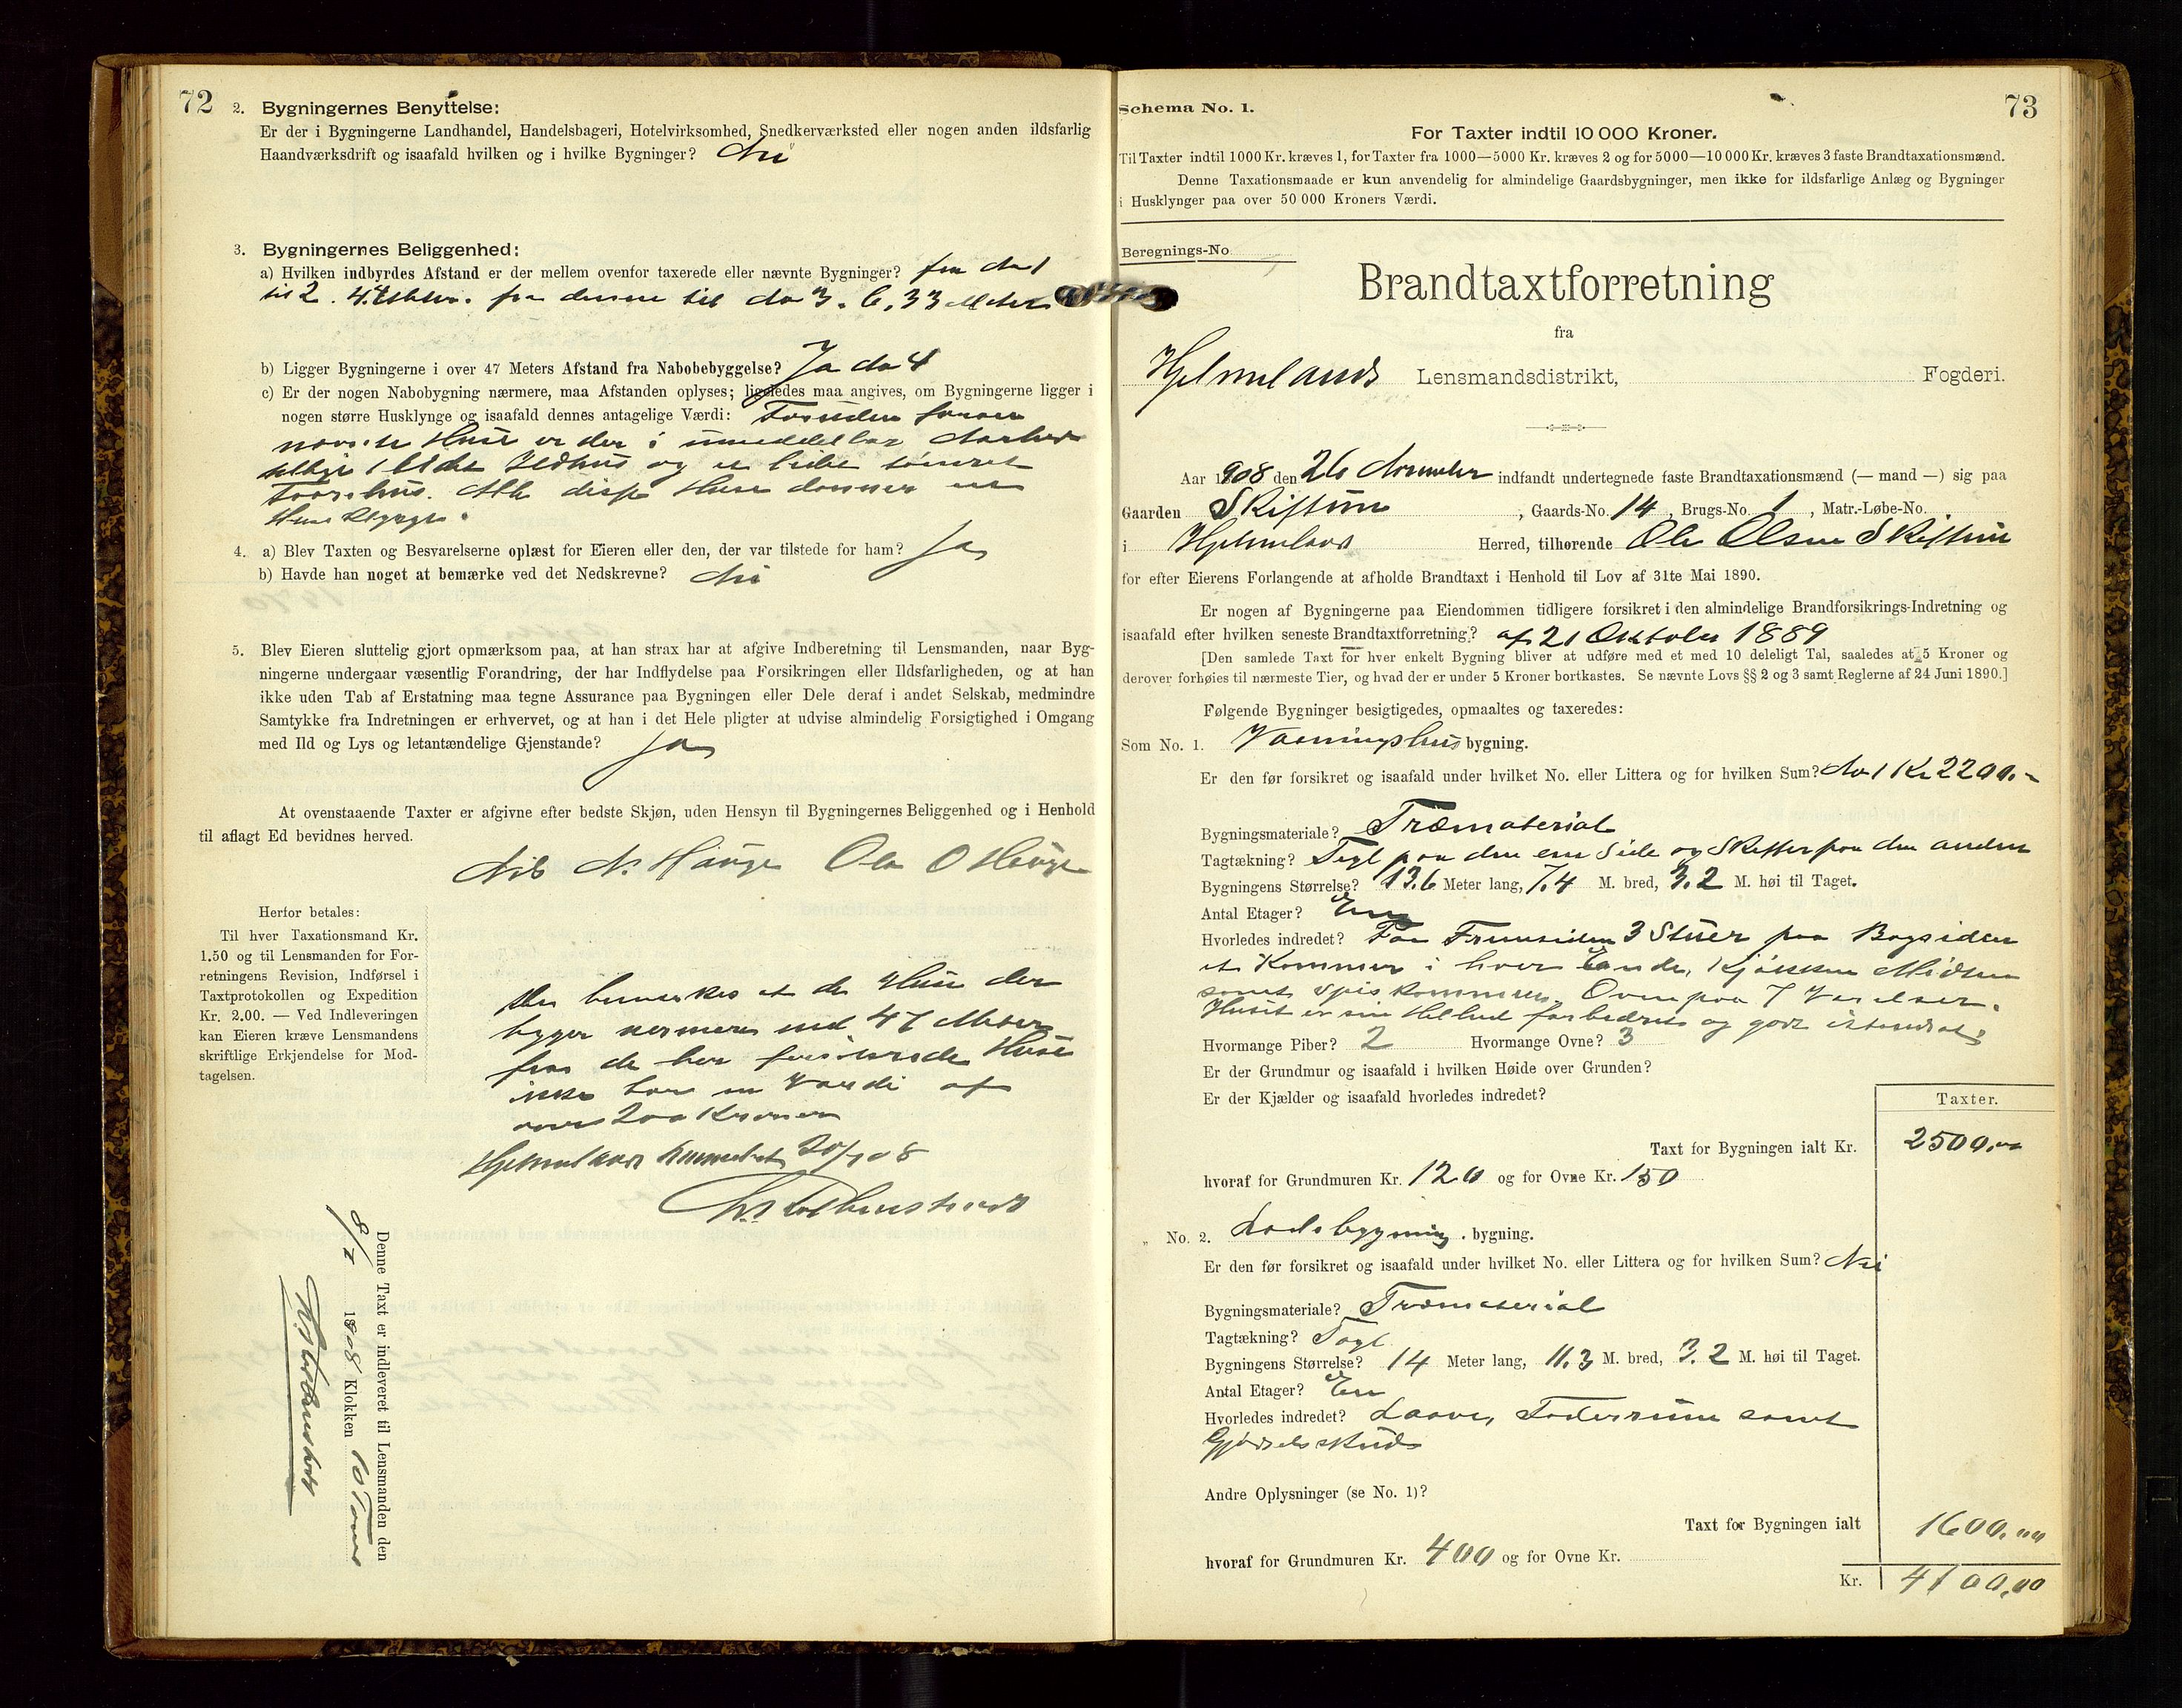 72
2. Bygningernes Benyttelse:
Er der i Bygningerne Landhandel, Handelsbageri, Hotelvirksomhed, Snedkerværksted eller nogen anden ildsfarlig
Haandværksdrift og isaafald hvilken og i hvilke Bygninger? Nei
3. Bygningernes Beliggenhed:
a) Hvilken indbyrdes Afstand er der mellem ovenfor taxerede eller nævnte Bygninger? fra No 1
til 2. fra denne til No 3. 6.33 Meter
b) Ligger Bygningerne i over 47 Meters Afstand fra Nabobebyggelse? Ja No 4
c) Er der nogen Nabobygning nærmere, maa Afstanden oplyses; ligeledes maa angives, om Bygningerne ligger i
nogen større Husklynge og isaafald dennes antagelige Værdi: Foruden foran
nævnte Huse er der i umiddelbar Nærhed
1 lidet Ildhus og et lidet tømret
Alle disse Huse danner en
Husklynge.
4. a) Blev Taxten og Besvarelserne oplæst for Eieren eller den, der var tilstede for ham? Ja
b) Havde han noget at bemærke ved det Nedskrevne? Nei
5. Blev Eieren sluttelig gjort opmærksom paa, at han strax har at afgive Indberetning til Lensmanden, naar Byg-
ningerne undergaar væsentlig Forandring, der har Indflydelse paa Forsikringen eller Ildsfarligheden, og at han
ikke uden Tab af Erstatning maa tegne Assurance paa Bygningen eller Dele deraf i andet Selskab, medmindre
Samtykke fra Indretningen er erhvervet, og at han i det Hele pligter at udvise almindelig Forsigtighed i Omgang
med Ild og Lys og letantændelige Gjenstande? Ja
At ovenstaaende Taxter er afgivne efter bedste Skjøn, uden Hensyn til Bygningernes Beliggenhed og i Henhold
til aflagt Ed bevidnes herved.
Nils N. Hauge Ola O Hauge
Herfor betales:
Til hver Taxationsmand Kr.
1.50 og til Lensmanden for For-
retningens Revision, Indførsel i
Taxtprotokollen og Expedition
Kr. 2.00. — Ved Indleveringen
kan Eieren kræve Lensmandens
skriftlige Erkjendelse for Mod-
tagelsen.
Det bemerkes at de Huse der
ligger nermere end 47 Meter
fra de her forsikrede Huse
ikke har en Værdi af
over 200 Kroner
Denne Taxt er indleveret til Lensmanden den
1908 Klokken 10
73
Schema No. 1.
For Taxter indtil 10 000 Kroner.
Til Taxter indtil 1000 Kr. kræves 1, for Taxter fra 1000—5000 Kr. kræves 2 og for 5000—10 000 Kr. kræves 3 faste Brandtaxationsmænd.
Denne Taxationsmaade er kun anvendelig for almindelige Gaardsbygninger, men ikke for ildsfarlige Anlæg og Bygninger
i Husklynger paa over 50 000 Kroners Værdi.
Beregnings-No
Brandtaxtforretning
fra
Hjelmelands Lensmandsdistrikt, Fogderi.
Aar 1908 den 26 November indfandt undertegnede faste Brandtaxationsmænd (— mand —) sig paa
Gaarden Skiftun, Gaards-No. 14, Brugs-No. 1, Matr.-Løbe-No.
i Hjelmeland Herred, tilhørende Ole Olsen Skiftun
for efter Eierens Forlangende at afholde Brandtaxt i Henhold til Lov af 31te Mai 1890.
Er nogen af Bygningerne paa Eiendommen tidligere forsikret i den almindelige Brandforsikrings-Indretning og
isaafald efter hvilken seneste Brandtaxtforretning? af 21 Oktober 1889
[Den samlede Taxt for hver enkelt Bygning bliver at udføre med et med 10 deleligt Tal, saaledes at 5 Kroner og
derover forhøies til nærmeste Tier, og hvad der er under 5 Kroner bortkastes. Se nævnte Lovs §§ 2 og 3 samt Reglerne af 24 Juni 1890.]
Følgende Bygninger besigtigedes, opmaaltes og taxeredes:
Som No. 1. Vaaningshusbygning.
Er den før forsikret og isaafald under hvilket No. eller Littera og for hvilken Sum? No 1 Kr 2200.-
Bygningsmateriale? Træmaterial
Tagtækning? Tegl paa den ene Side og Skiffer paa den anden
Bygningens Størrelse? 13.6 Meter lang, 7.4 M. bred, 3.2 M. høi til Taget.
Antal Etager? En
Hvorledes indredet? Paa Fremsiden 3 Stuer paa Bagsiden
et Kammer i hver Ende, Kjøkken Midten
samt Spiskammer. Ovenpaa 7 Værelser.
Huset er sin Helhed forbedret og godt istandsat.
Hvormange Piber? 2 Hvormange Ovne? 3
Er der Grundmur og isaafald i hvilken Høide over Grunden?
Er der Kjælder og isaafald hvorledes indredet?
Taxter.
Taxt for Bygningen ialt Kr. 2500.00
hvoraf for Grundmuren Kr. 120 og for Ovne Kr. 150
„ No. 2. Ladebygning. bygning.
Er den før forsikret og isaafald under hvilket No. eller Littera og for hvilken Sum? Nei
Bygningsmateriale? Træmaterial
Tagtækning? Tegl
Bygningens Størrelse? 14 Meter lang, 11.3 M. bred, 3.2 M. høi til Taget.
Antal Etager? En
Hvorledes indredet? Laave, Foderrum samt
Gjødselskud
Andre Oplysninger (se No. 1)?
Taxt for Bygningen ialt 1600.00
hvoraf for Grundmuren Kr. 400 og for Ovne Kr.
Kr. 4100,00